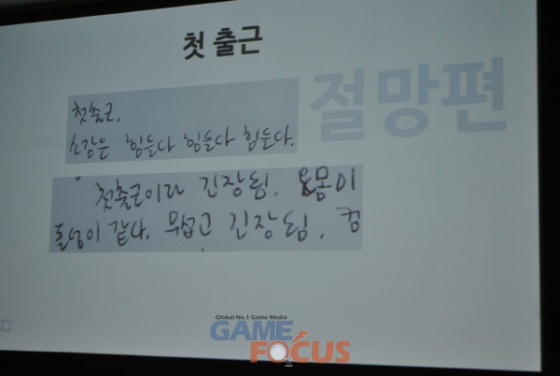 첫 출근
절망편
첫출근.
소감은 힘들다 힘들다 힘들다.
첫출근이라 긴장됨. 몸이
돌덩이 같다. 무섭고 긴장됨.
Global No.1 Game Media
GAME
FOCUS